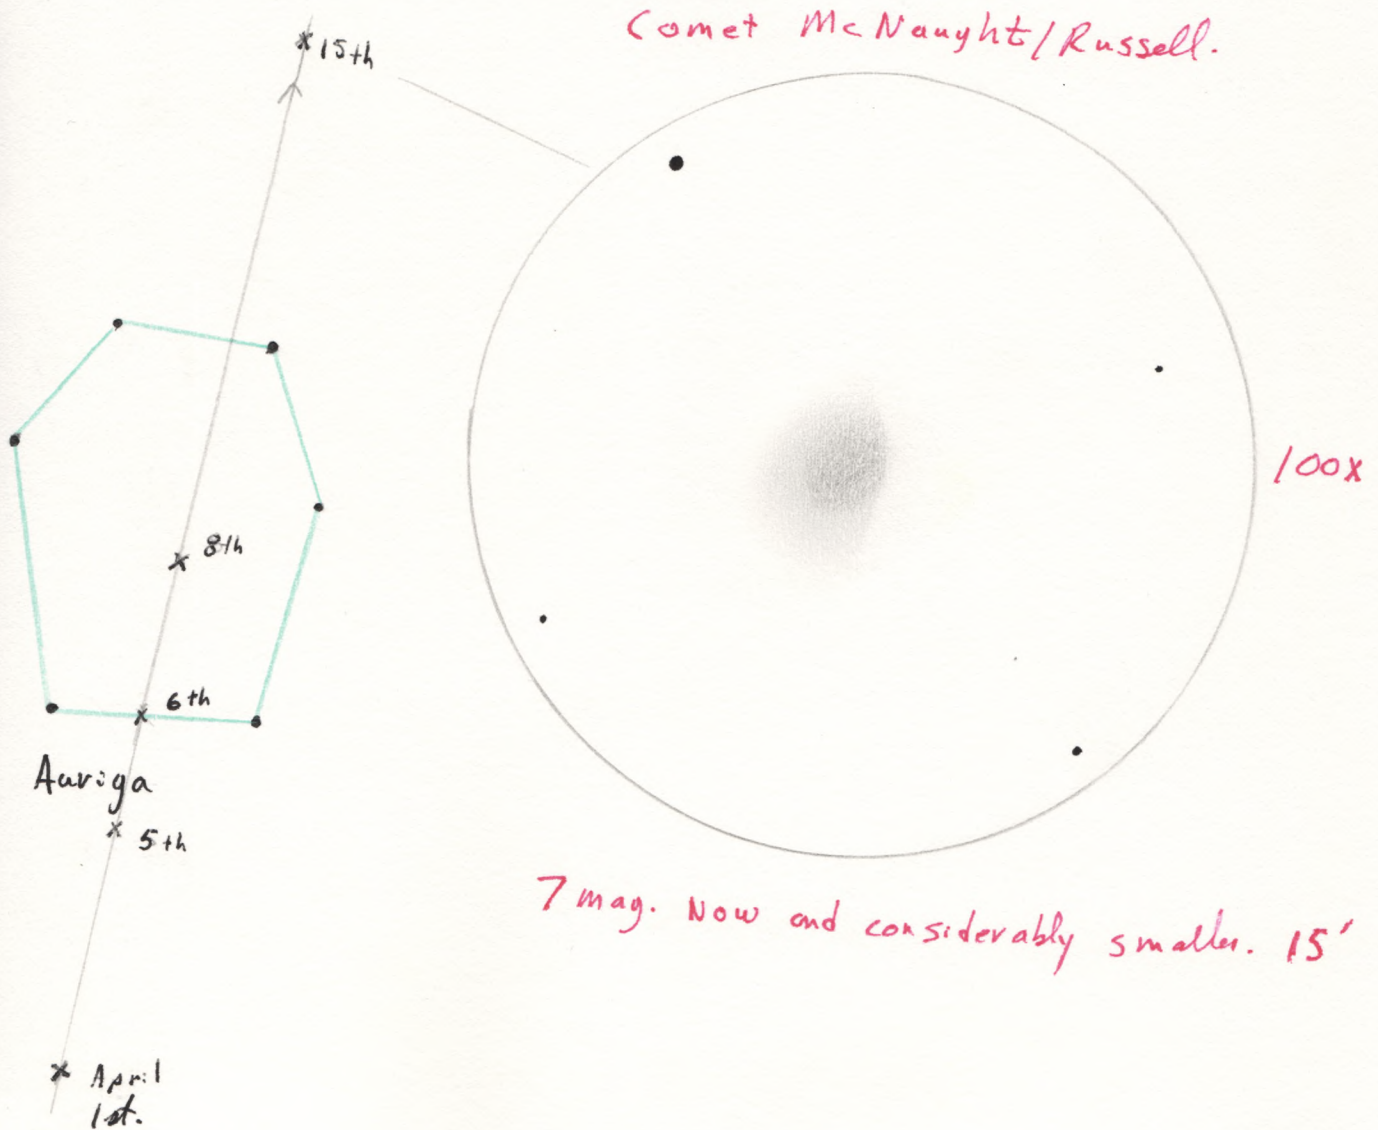 Comet McNaught/Russell.
15th
100x
8th
6th
Auriga
5th
7 mag. Now and considerably smaller. 15'
April
1st.